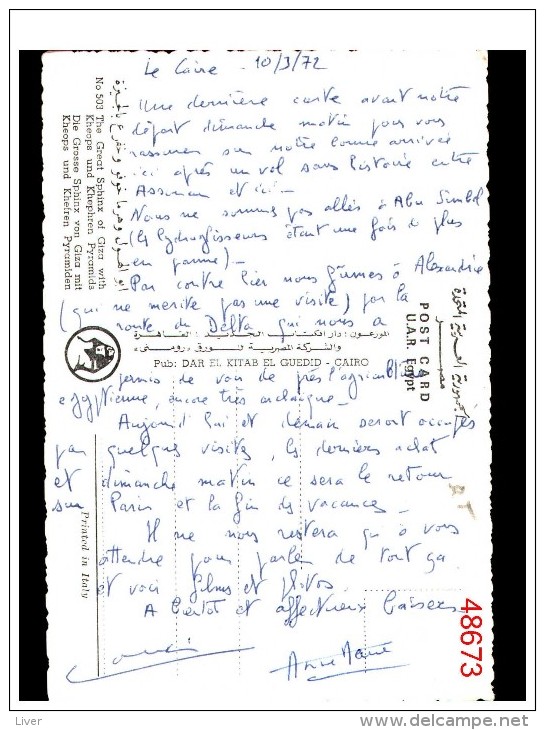 Le Caire - 10/3/72
Une dernière carte avant notre
départ dimanche matin pour vous
rassurer sur notre bonne arrivée
ici après un vol sans histoire entre
Assouan et ici -
Nous ne sommes pas allés à Abu Simbel
(les hydroglisseurs étant une fois de plus
en panne) -
Par contre hier nous fûmes à Alexandrie
(qui ne mérite pas une visite) par la
route du Delta qui nous a
permis de voir de près l'agriculture
egyptienne, encore très archaïque -
Aujourd'hui et demain seront occupés
par quelques visites, les derniers achats
et dimanche matin ce sera le retour
sur Paris et la fin des vacances -
Il ne nous restera qu'à vous
attendre pour parler de tout ça
et voir films et photos.
A bientôt et affectueux baisers
Anne Marie
ابو الهول وهرما خوفو وخفرع بالجيزة
No 503 The Great Sphinx of Giza with
Kheops und Khephren Pyramids
Die Grosse Sphinx von Giza mit
Kheops und Khefren Pyramiden
الجمهورية العربية المتحدة
مصر
POST CARD
U.A.R. Egypt
الموزعون: دار الكتاب الجديد - القاهرة
والشركة المصرية للورق «رومني»
Pub: DAR EL KITAB EL GUEDID - CAIRO
Printed in Italy
48673
Liver
delcampe.net